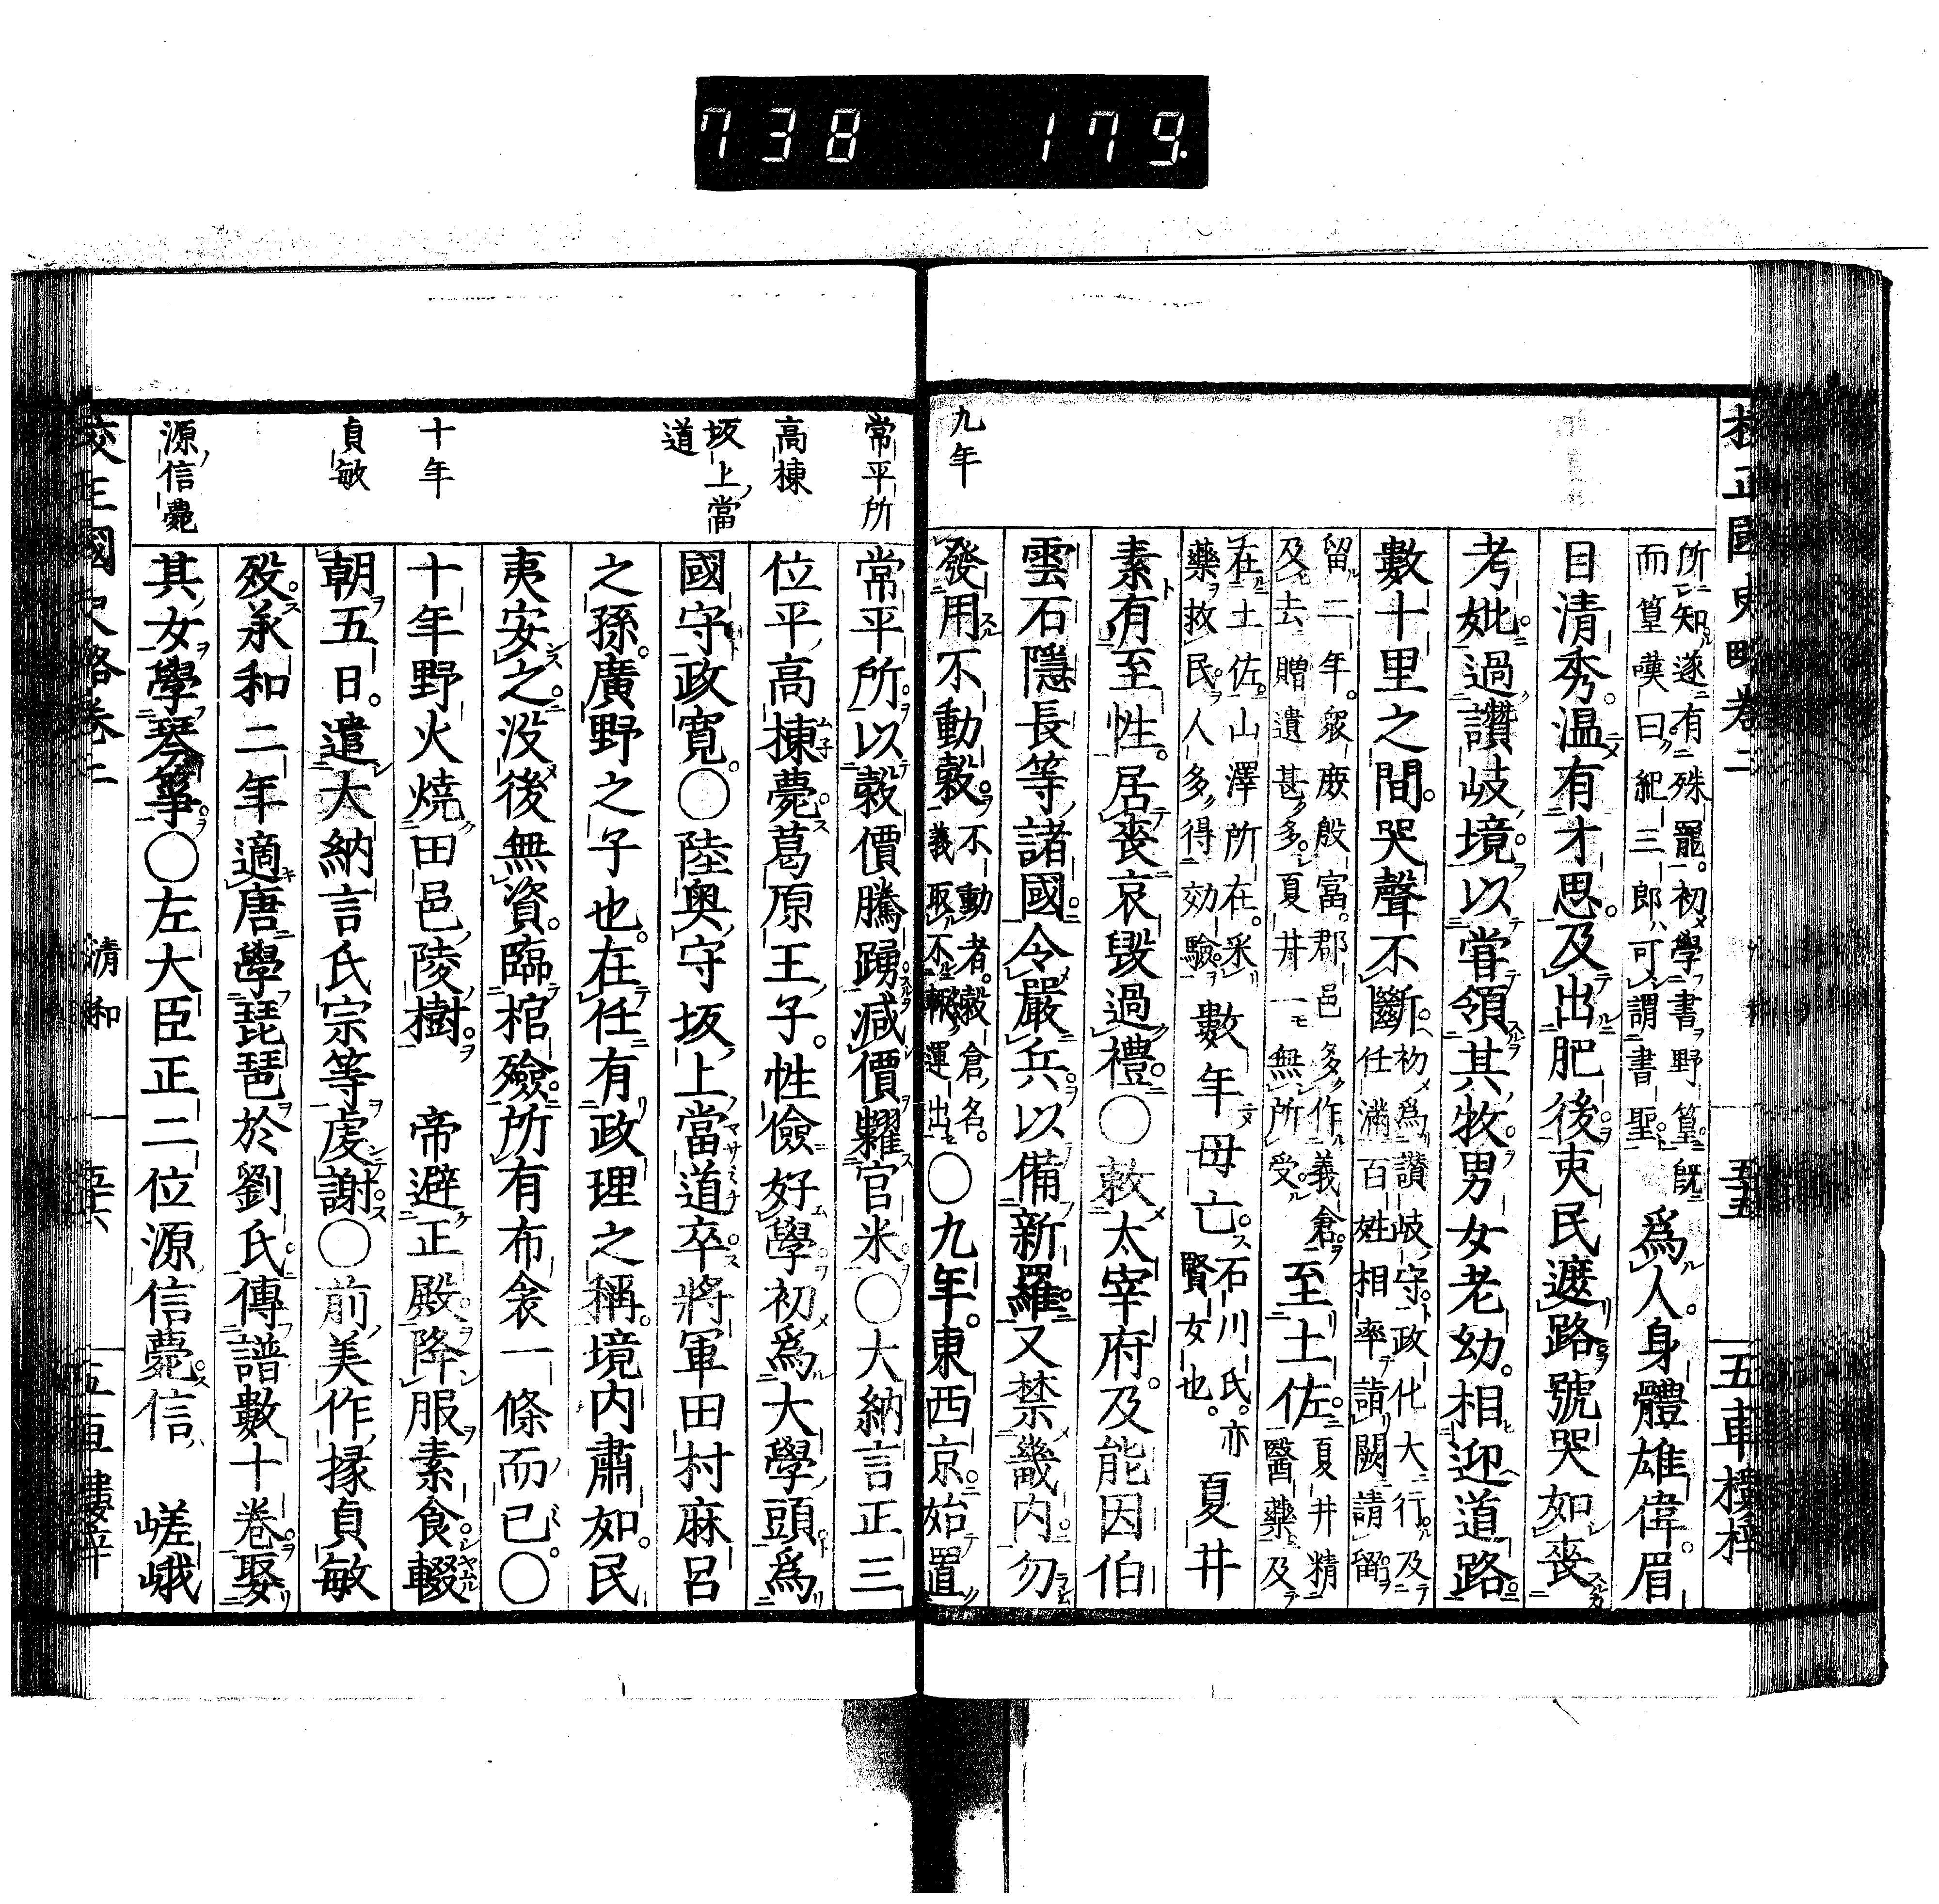 738 179.
校正國史略卷二 五十五 五車樓梓
所知遂有殊罷。初學書野篁既
而篁嘆曰紀三郎可謂書聖
爲人。身體雄偉。眉
目清秀。温有才思。及出肥後吏民遮路號哭如喪
考妣過讃岐境。以甞領其牧。男女老幼。相迎道路
數十里之間。哭聲不斷。
初爲讃岐守政化大行及
任滿百姓相率詣闕請留
留二年。衆庶殷富。郡邑多作義倉
及去贈遺甚多。夏井一無所受
至土佐。
夏井精
醫藥及
在土佐。山澤所在。采
藥救民。人多得効驗。
數年母亡。
石川氏。亦
賢女也。
夏井
素有至性。居喪哀毀過禮。〇敕太宰府。及能因伯
雲石隱長等諸國。令嚴兵以備新羅。又禁畿内勿
九年
發用不動穀。
不動者。穀倉名。
義取不輙運出
〇九年。東西京。始置
常平所
常平所。以穀價騰踴減價糶官米。〇大納言正三
高棟
位平高棟薨。葛原王子。性儉好學初爲大學頭爲
坂上當道
國守政寛。〇陸奥守坂上當道卒。將軍田村麻呂
之孫。廣野之子也。在任有政理之稱。境内肅如。民
夷安之。沒後無資。臨棺殮。所有布衾一條而已。〇
十年
十年野火燒田邑陵樹。 帝避正殿。降服素食。輟
貞敏
朝五日。遣大納言氏宗等䖍謝。〇前美作掾貞敏
歿。承和二年適唐學琵琶於劉氏。傳譜數十卷。娶
源信薨
其女學琴箏。〇左大臣正二位源信薨。信 嵯峨
校正國史略卷二 清和 五十六 五車樓梓